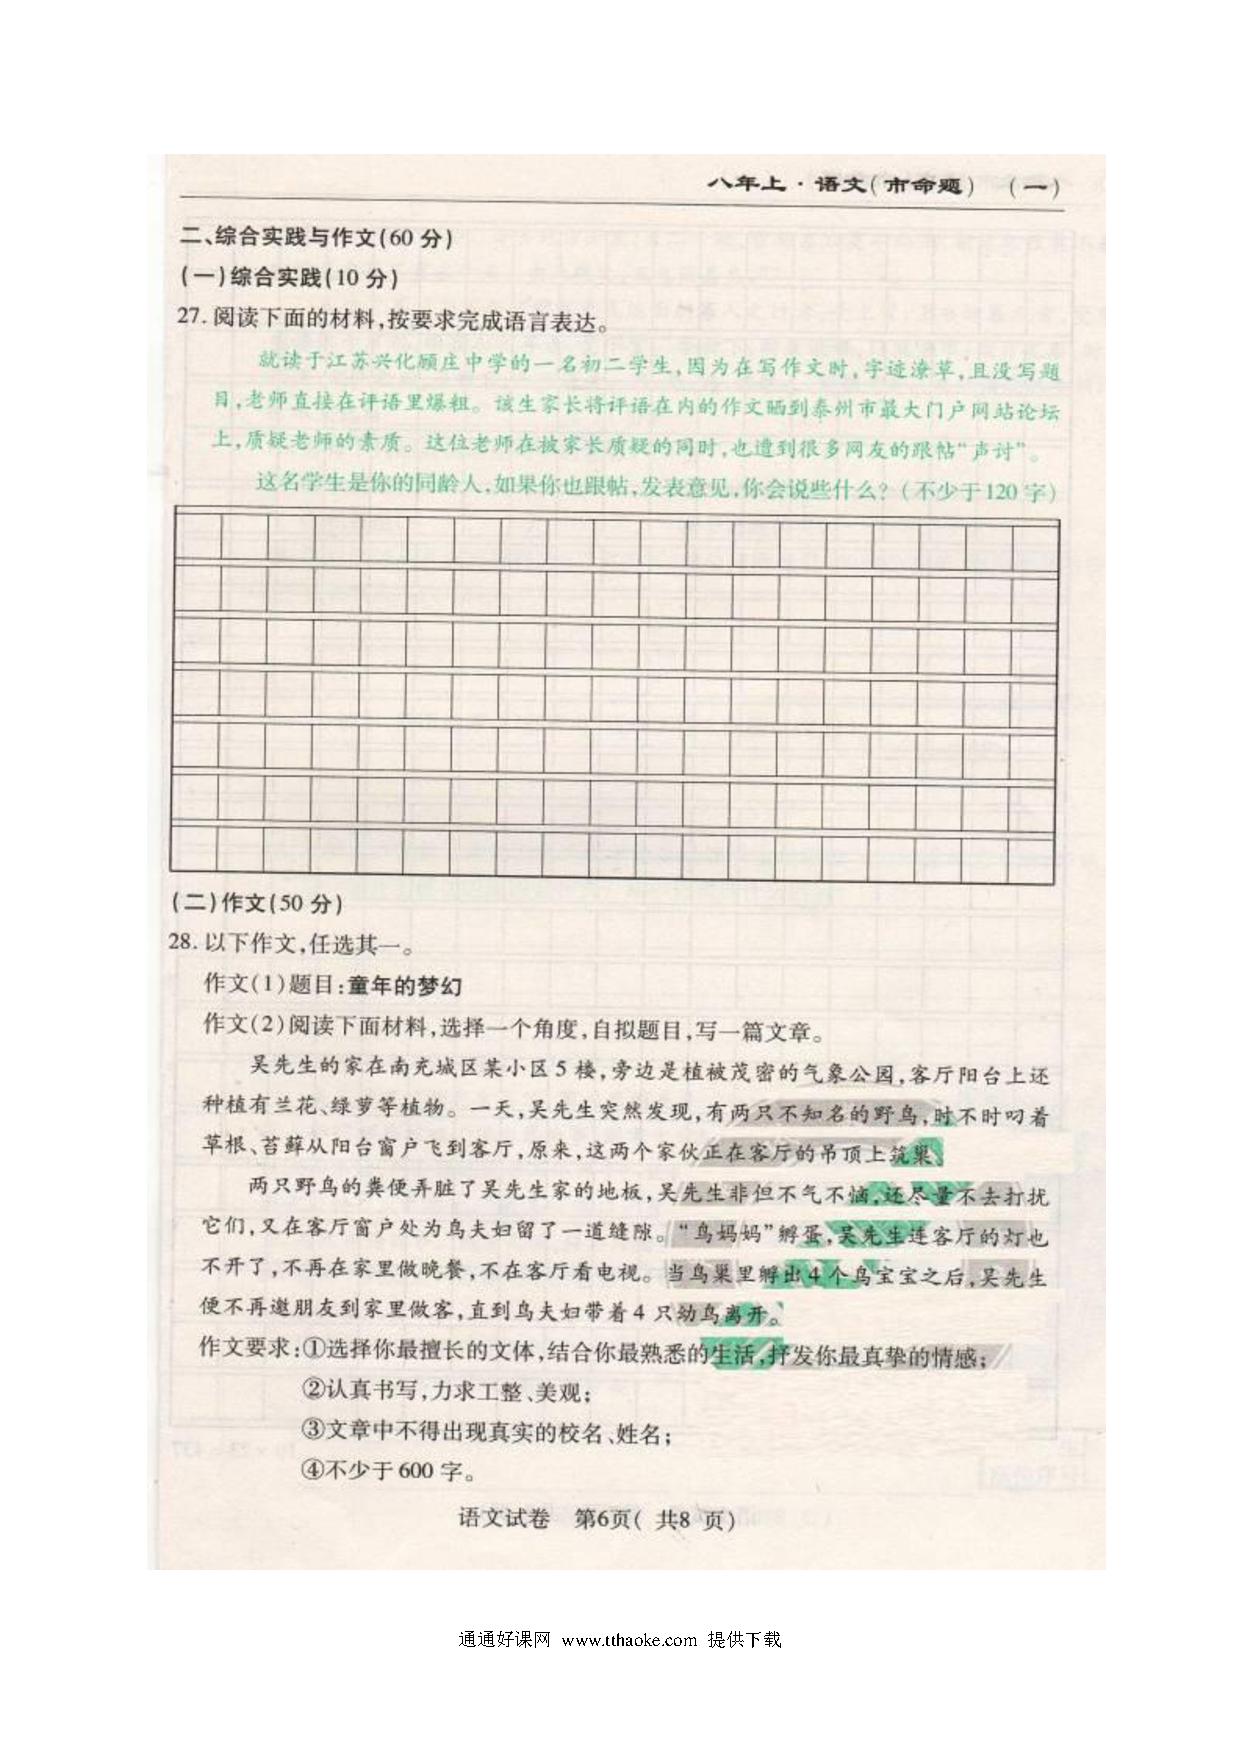 八年上·语文(市命题) (一)
二、综合实践与作文(60分)
(一)综合实践(10分)
27.阅读下面的材料,按要求完成语言表达。
就读于江苏兴化顾庄中学的一名初二学生,因为在写作文时,字迹潦草,且没写题
目,老师直接在评语里爆粗。该生家长将评语在内的作文晒到泰州市最大门户网站论坛
上,质疑老师的素质。这位老师在被家长质疑的同时,也遭到很多网友的跟帖“声讨”。
这名学生是你的同龄人,如果你也跟帖,发表意见,你会说些什么?(不少于120字)
(二)作文(50分)
28.以下作文,任选其一。
作文(1)题目:童年的梦幻
作文(2)阅读下面材料,选择一个角度,自拟题目,写一篇文章。
吴先生的家在南充城区某小区5楼,旁边是植被茂密的气象公园,客厅阳台上还
种植有兰花、绿萝等植物。一天,吴先生突然发现,有两只不知名的野鸟,时不时叼着
草根、苔藓从阳台窗户飞到客厅,原来,这两个家伙正在客厅的吊顶上筑巢。
两只野鸟的粪便弄脏了吴先生家的地板,吴先生非但不气不恼,还尽量不去打扰
它们,又在客厅窗户处为鸟夫妇留了一道缝隙。“鸟妈妈”孵蛋,吴先生连客厅的灯也
不开了,不再在家里做晚餐,不在客厅看电视。当鸟巢里孵出4个鸟宝宝之后,吴先生
便不再邀朋友到家里做客,直到鸟夫妇带着4只幼鸟离开。
作文要求:①选择你最擅长的文体,结合你最熟悉的生活,抒发你最真挚的情感;
②认真书写,力求工整、美观;
③文章中不得出现真实的校名、姓名;
④不少于600字。
语文试卷 第6页( 共8 页)
通通好课网 www.tthaoke.com 提供下载